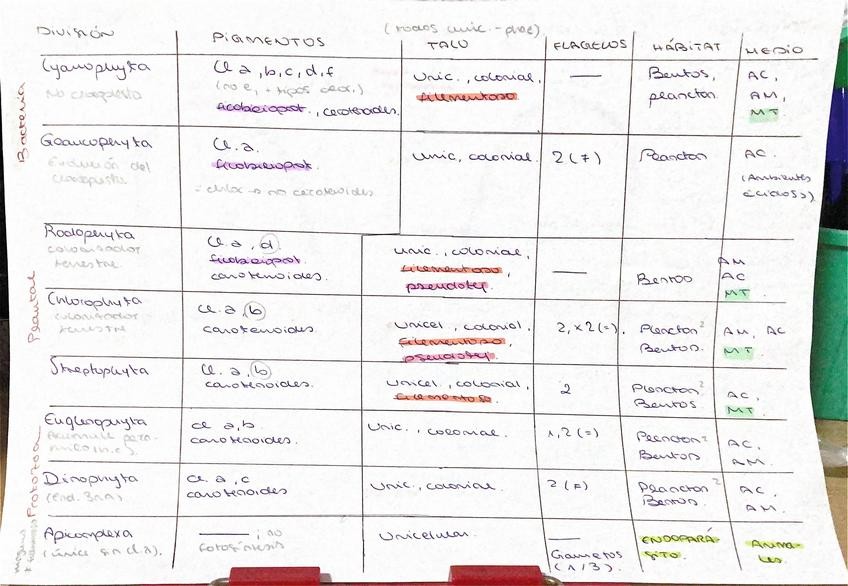 (todos unic.-pluc)
DIVISIÓN PIGMENTOS TALO FLAGELOS HÁBITAT MEDIO
Bacteria
Cyanophyta Cl a, b, c, d, f Unic., colonial, — Bentos, AC,
No cloroplasto (no e, + tipos clor.) filamentoso plancton. AM,
ficobiliprot., carotenoides. MT
Glaucophyta Cl. a. Unic, colonial. 2 (≠) Plancton AC.
Evolución del ficobiliprot. (Ambientes
cloroplasto = chlor → no carotenoides ácidos)
Plantae
Rodophyta Cl. a, d. Unic., colonial, — Bentos AM
colonizador ficobiliprot. filamentoso, AC
terrestre carotenoides. pseudotej. MT
Chlorophyta Cl. a, b Unicel., colonial, 2, x2 (=). Plancton² AM, AC
colonizador carotenoides filamentoso Bentos. MT
terrestre pseudotej
Streptophyta Cl. a, b Unicel, colonial, 2 Plancton² AC,
carotenoides. filamentoso. Bentos MT
Protozoa
Euglenophyta Cl a, b. Unic., colonial. 1, 2 (=) Plancton² AC,
carotenoides. Bentos AM.
Dinophyta Cl. a, c Unic., colonial. 2 (≠) Plancton² AC.
(end. 3ria) carotenoides Bentos. AM.
Apicomplexa — ; no Unicelular. — ENDOPARÁ- Anima-
(única sin cl. a). fotosíntesis Gametos SITO. les.
(1/3).